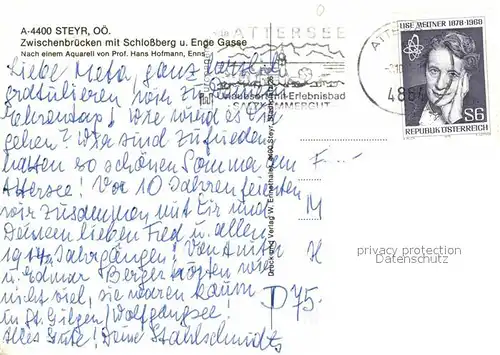 A-4400 STEYR, OÖ.
Zwischenbrücken mit Schloßberg u. Enge Gasse
Nach einem Aquarell von Prof. Hans Hofmann, Enns
Liebe Meta, ganz
gratulieren wir zu
Ehrentag! Wie wird es Dir
gehen? Wir sind zufrieden
hatten so schönen Sommer am
Attersee! Vor 10 Jahren feierten
wir zusammen mit Dir und
Deinem lieben Fred u. allen
1914 Jahrgängen! Von Anita
u. Edmar Berger hören wir
nicht viel, sie waren kaum
in St. Gilgen/Wolfgangsee!
Alles Gute! Deine Stahlschmidts
ATTERSEE
Urlaubsort mit Erlebnisbad
SALZKAMMERGUT
4864
LISE MEITNER 1878-1968
S6
REPUBLIK ÖSTERREICH
Druck und Verlag W. Ennsthaler, 4400 Steyr, Stadtplatz 26
F....
M
H
D 75.
privacy protection
Datenschutz